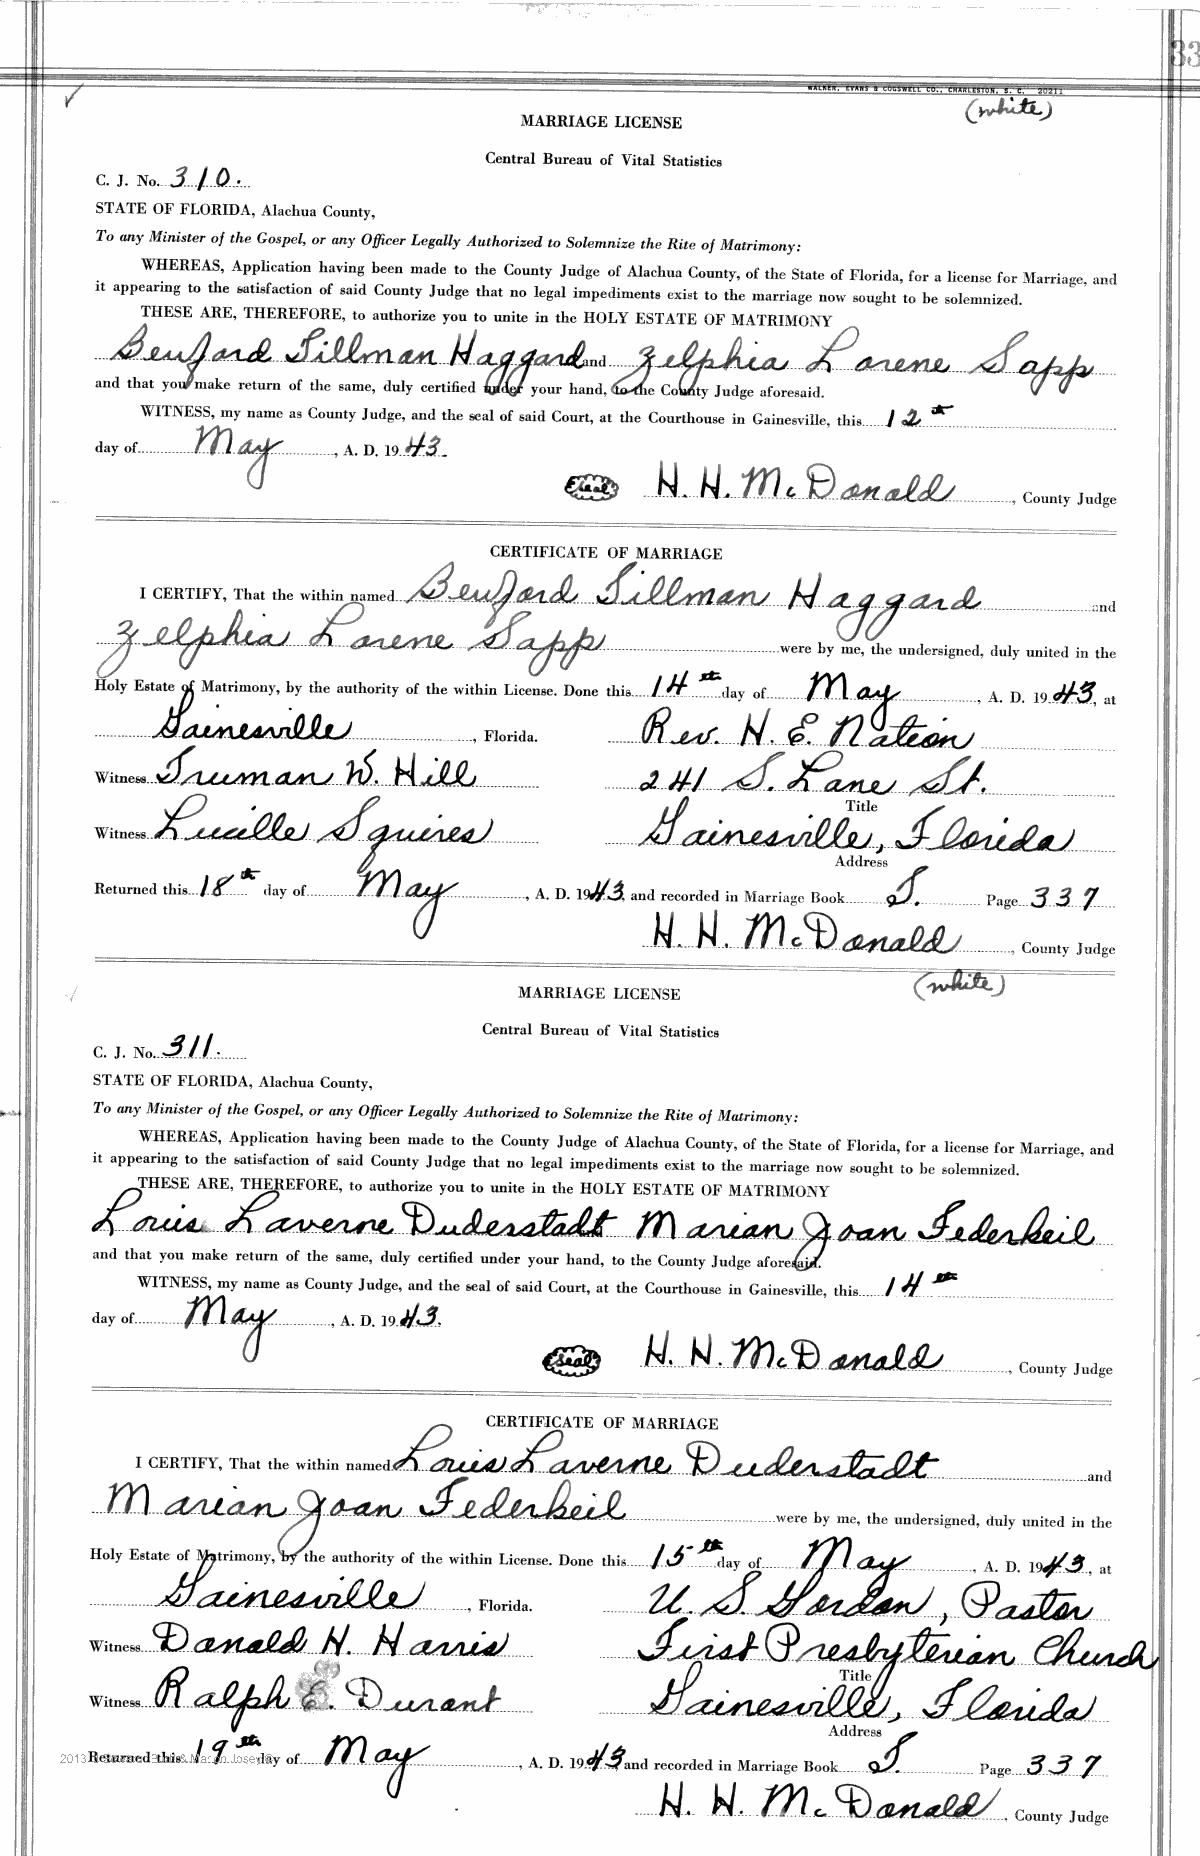 33
WALKER, EVANS & COGSWELL CO., CHARLESTON, S. C. 20211
(white)
MARRIAGE LICENSE
Central Bureau of Vital Statistics
C. J. No. 310.
STATE OF FLORIDA, Alachua County,
To any Minister of the Gospel, or any Officer Legally Authorized to Solemnize the Rite of Matrimony:
WHEREAS, Application having been made to the County Judge of Alachua County, of the State of Florida, for a license for Marriage, and
it appearing to the satisfaction of said County Judge that no legal impediments exist to the marriage now sought to be solemnized.
THESE ARE, THEREFORE, to authorize you to unite in the HOLY ESTATE OF MATRIMONY
Beuford Tillman Haggard and Zelphia Lorene Sapp
and that you make return of the same, duly certified under your hand, to the County Judge aforesaid.
WITNESS, my name as County Judge, and the seal of said Court, at the Courthouse in Gainesville, this 12th
day of May, A. D. 1943.
Seal H. H. McDonald, County Judge
CERTIFICATE OF MARRIAGE
I CERTIFY, That the within named Beuford Tillman Haggard and
Zelphia Lorene Sapp were by me, the undersigned, duly united in the
Holy Estate of Matrimony, by the authority of the within License. Done this 14th day of May, A. D. 1943, at
Gainesville, Florida. Rev. H. E. Nation
Witness Truman W. Hill 241 S. Lane St.
Title
Witness Lucille Squires Gainesville, Florida
Address
Returned this 18th day of May, A. D. 1943, and recorded in Marriage Book T. Page 337
H. H. McDonald, County Judge
(white)
MARRIAGE LICENSE
Central Bureau of Vital Statistics
C. J. No. 311.
STATE OF FLORIDA, Alachua County,
To any Minister of the Gospel, or any Officer Legally Authorized to Solemnize the Rite of Matrimony:
WHEREAS, Application having been made to the County Judge of Alachua County, of the State of Florida, for a license for Marriage, and
it appearing to the satisfaction of said County Judge that no legal impediments exist to the marriage now sought to be solemnized.
THESE ARE, THEREFORE, to authorize you to unite in the HOLY ESTATE OF MATRIMONY
Louis Laverne Duderstadt Marian Joan Federkeil
and that you make return of the same, duly certified under your hand, to the County Judge aforesaid.
WITNESS, my name as County Judge, and the seal of said Court, at the Courthouse in Gainesville, this 14th
day of May, A. D. 1943.
Seal H. H. McDonald, County Judge
CERTIFICATE OF MARRIAGE
I CERTIFY, That the within named Louis Laverne Duderstadt and
Marian Joan Federkeil were by me, the undersigned, duly united in the
Holy Estate of Matrimony, by the authority of the within License. Done this 15th day of May, A. D. 1943, at
Gainesville, Florida. U. S. Gordon, Pastor
Witness Donald H. Harris First Presbyterian Church
Title
Witness Ralph E. Durant Gainesville, Florida
Address
Returned this 19th day of May, A. D. 1943 and recorded in Marriage Book T. Page 337
H. H. McDonald, County Judge